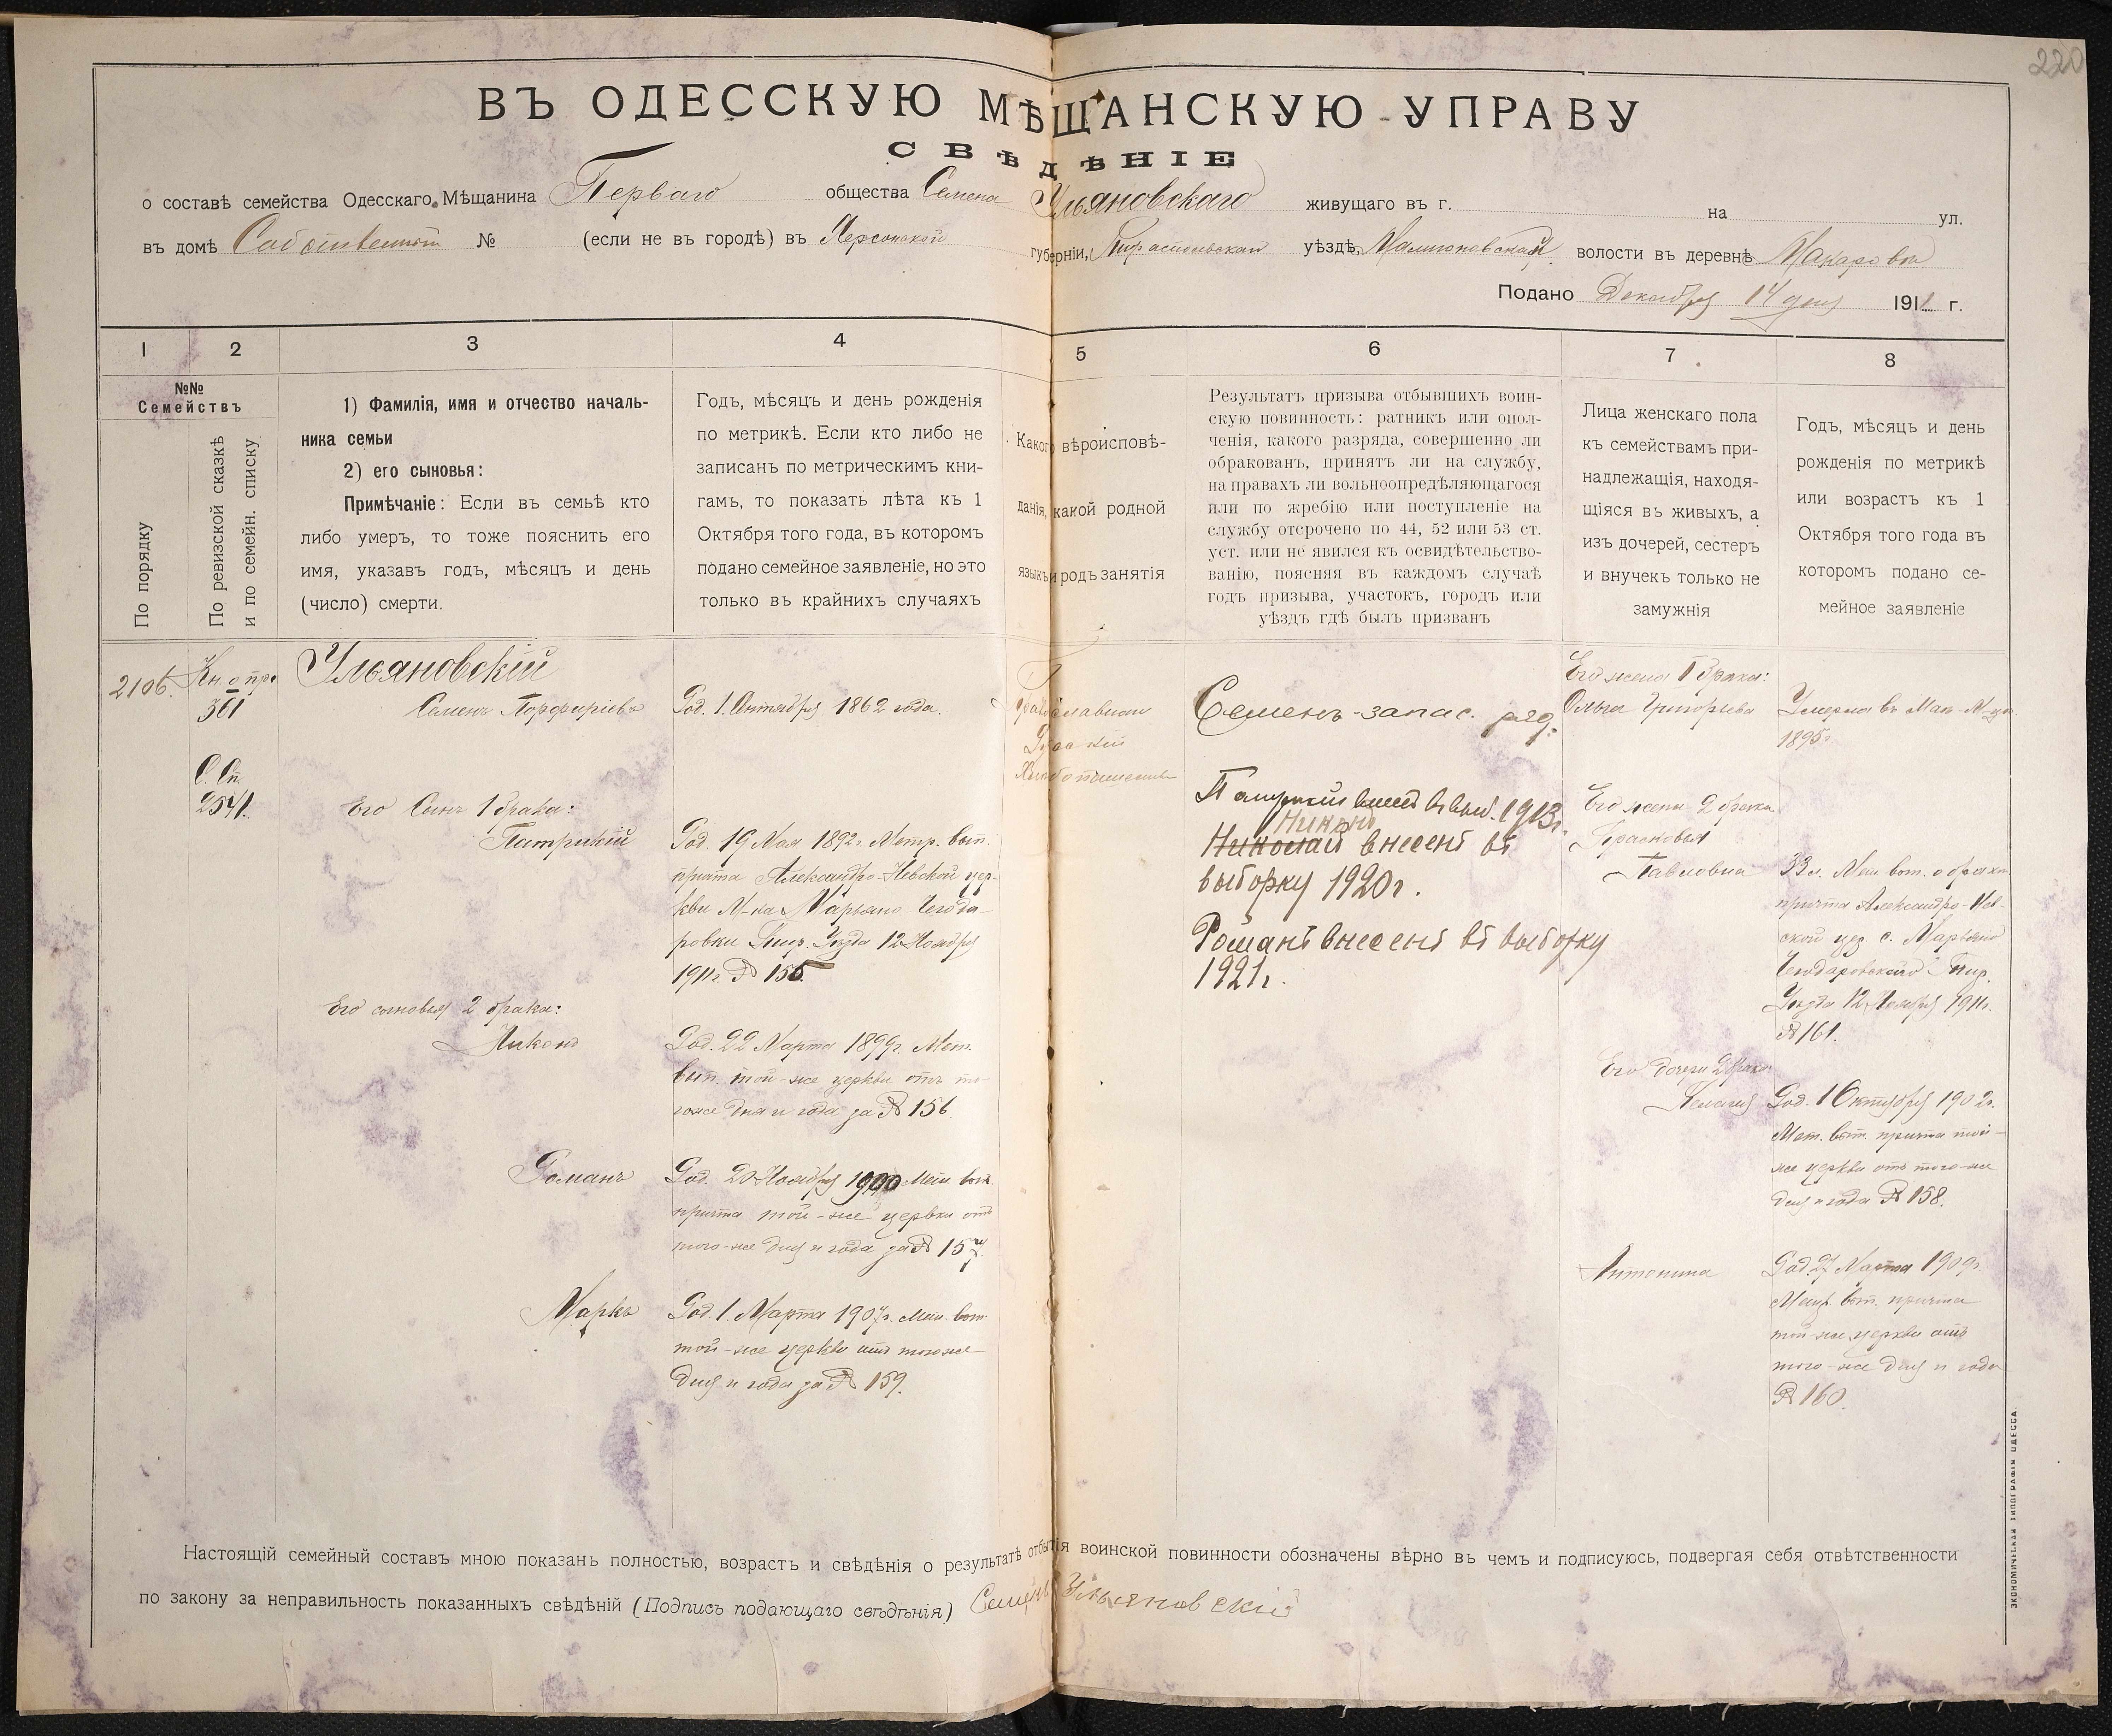 220
ВЪ ОДЕССКУЮ МѢЩАНСКУЮ УПРАВУ
СВѢДѢНІЕ
о составѣ семейства Одесскаго Мѣщанина Перваго общества Семена Ульяновскаго живущаго въ г. на ул.
въ домѣ Собственном № (если не въ городѣ) въ Херсонской губерніи, Тираспольскаго уѣздѣ, волости въ деревнѣ Макаровки
Подано Декабря 14 дня 1911 г.
1
2
3
4
5
6
7
8
№№
Семействъ
По порядку
По ревизской сказкѣ
и по семейн. списку
1) Фамилія, имя и отчество началь-
ника семьи
2) его сыновья:
Примѣчаніе: Если въ семьѣ кто
либо умеръ, то тоже пояснить его
имя, указавъ годъ, мѣсяцъ и день
(число) смерти.
Годъ, мѣсяцъ и день рожденія
по метрикѣ. Если кто либо не
записанъ по метрическимъ кни-
гамъ, то показать лѣта къ 1
Октября того года, въ которомъ
подано семейное заявленіе, но это
только въ крайнихъ случаяхъ
Какого вѣроисповѣ-
данія, какой родной
языкъ и родъ занятія
Результатъ призыва отбывшихъ воин-
скую повинность: ратникъ или опол-
ченія, какого разряда, совершенно ли
обракованъ, принятъ ли на службу,
на правахъ ли вольноопредѣляющагося
или по жребію или поступленіе на
службу отсрочено по 44, 52 или 53 ст.
уст. или не явился къ освидѣтельство-
ванію, поясняя въ каждомъ случаѣ
годъ призыва, участокъ, городъ или
уѣздъ гдѣ былъ призванъ
Лица женскаго пола
къ семействамъ при-
надлежащія, находя-
щіяся въ живыхъ, а
изъ дочерей, сестеръ
и внучекъ только не
замужнія
Годъ, мѣсяцъ и день
рожденія по метрикѣ
или возрастъ къ 1
Октября того года въ
которомъ подано се-
мейное заявленіе
2106.
Кн. о пр.
361
С. Сп.
2541.
Ульяновскій
Семенъ Порфиріевъ
Его Сынъ 1 брака:
Патрикій
Его сыновья 2 брака:
Никонъ
Романъ
Маркъ
Род. 1. Октября 1862 года.
Род. 19 Мая 1892 г. Метр. вып.
причта Александро-Невской цер-
кви М-ка Марьяно-Чегода-
ровки Тир. Уѣзда 12 Ноября
1911 г. № 155.
Род. 22 Марта 1899 г. Мет.
вып. той-же церкви отъ то-
гоже дня и года за № 156.
Род. 20 Ноября 1900 Мет. вып.
причта той-же церкви отъ
того-же дня и года за № 157.
Род. 1. Марта 1907 г. Мет. вып.
той-же церкви отъ тогоже
дня и года за № 159.
Православнаго
Русскій
Хлебопашество
Семенъ-запас. ряд.
Патрикій внес. въ выб. 1913 г.
Никонъ
Николай внесенъ въ
выборку 1920 г.
Романъ внесенъ въ выборку
1921 г.
Его жена 1 брака:
Ольга Григорьева
Его жена 2 брака
Прасковья
Павловна
Его дочери 2 брака
Пелагія
Антонина
Умерла въ Мая
1895 г.
33 л. Мет. вып. о брака
причта Александро-Нев-
ской цер. с. Марьяно
Чегодаровскаго Тир.
Уѣзда 12 Ноября 1911 г.
№ 161.
Род. 1 Октября 1902 г.
Мет. вып. причта той-
же церкви отъ того-же
дня и года № 158.
Род. 27 Марта 1909 г.
Метр. вып. причта
той-же церкви отъ
того-же дня и года
№ 160.
Настоящій семейный составъ мною показанъ полностью, возрастъ и свѣдѣнія о результатѣ отбытія воинской повинности обозначены вѣрно въ чемъ и подписуюсь, подвергая себя отвѣтственности
по закону за неправильность показанныхъ свѣдѣній (Подпись подающаго свѣдѣнія) Семенъ Ульяновскій
ЭКОНОМИЧЕСКАЯ ТИПОГРАФІЯ ОДЕССА.